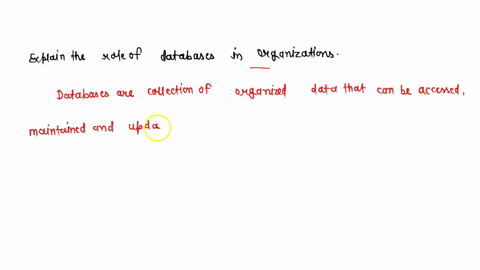 Explain the role of databases in organizations.
Databases are collection of organized data that can be accessed,
maintained and upda